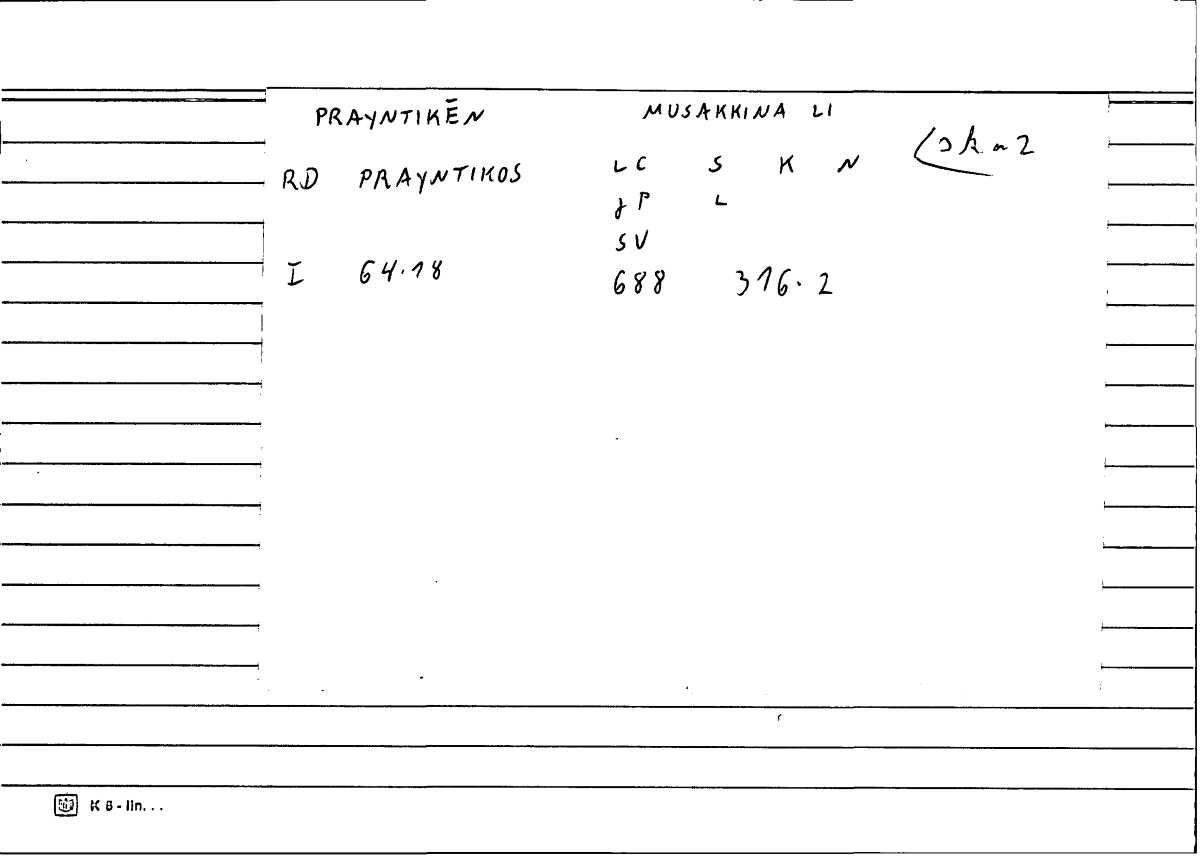 PRAYNTIKĒN MUSAKKINA LI
RD PRAYNTIKOS LC S K N
JP L
SV
I 64.18 688 316.2
K 6-lin...